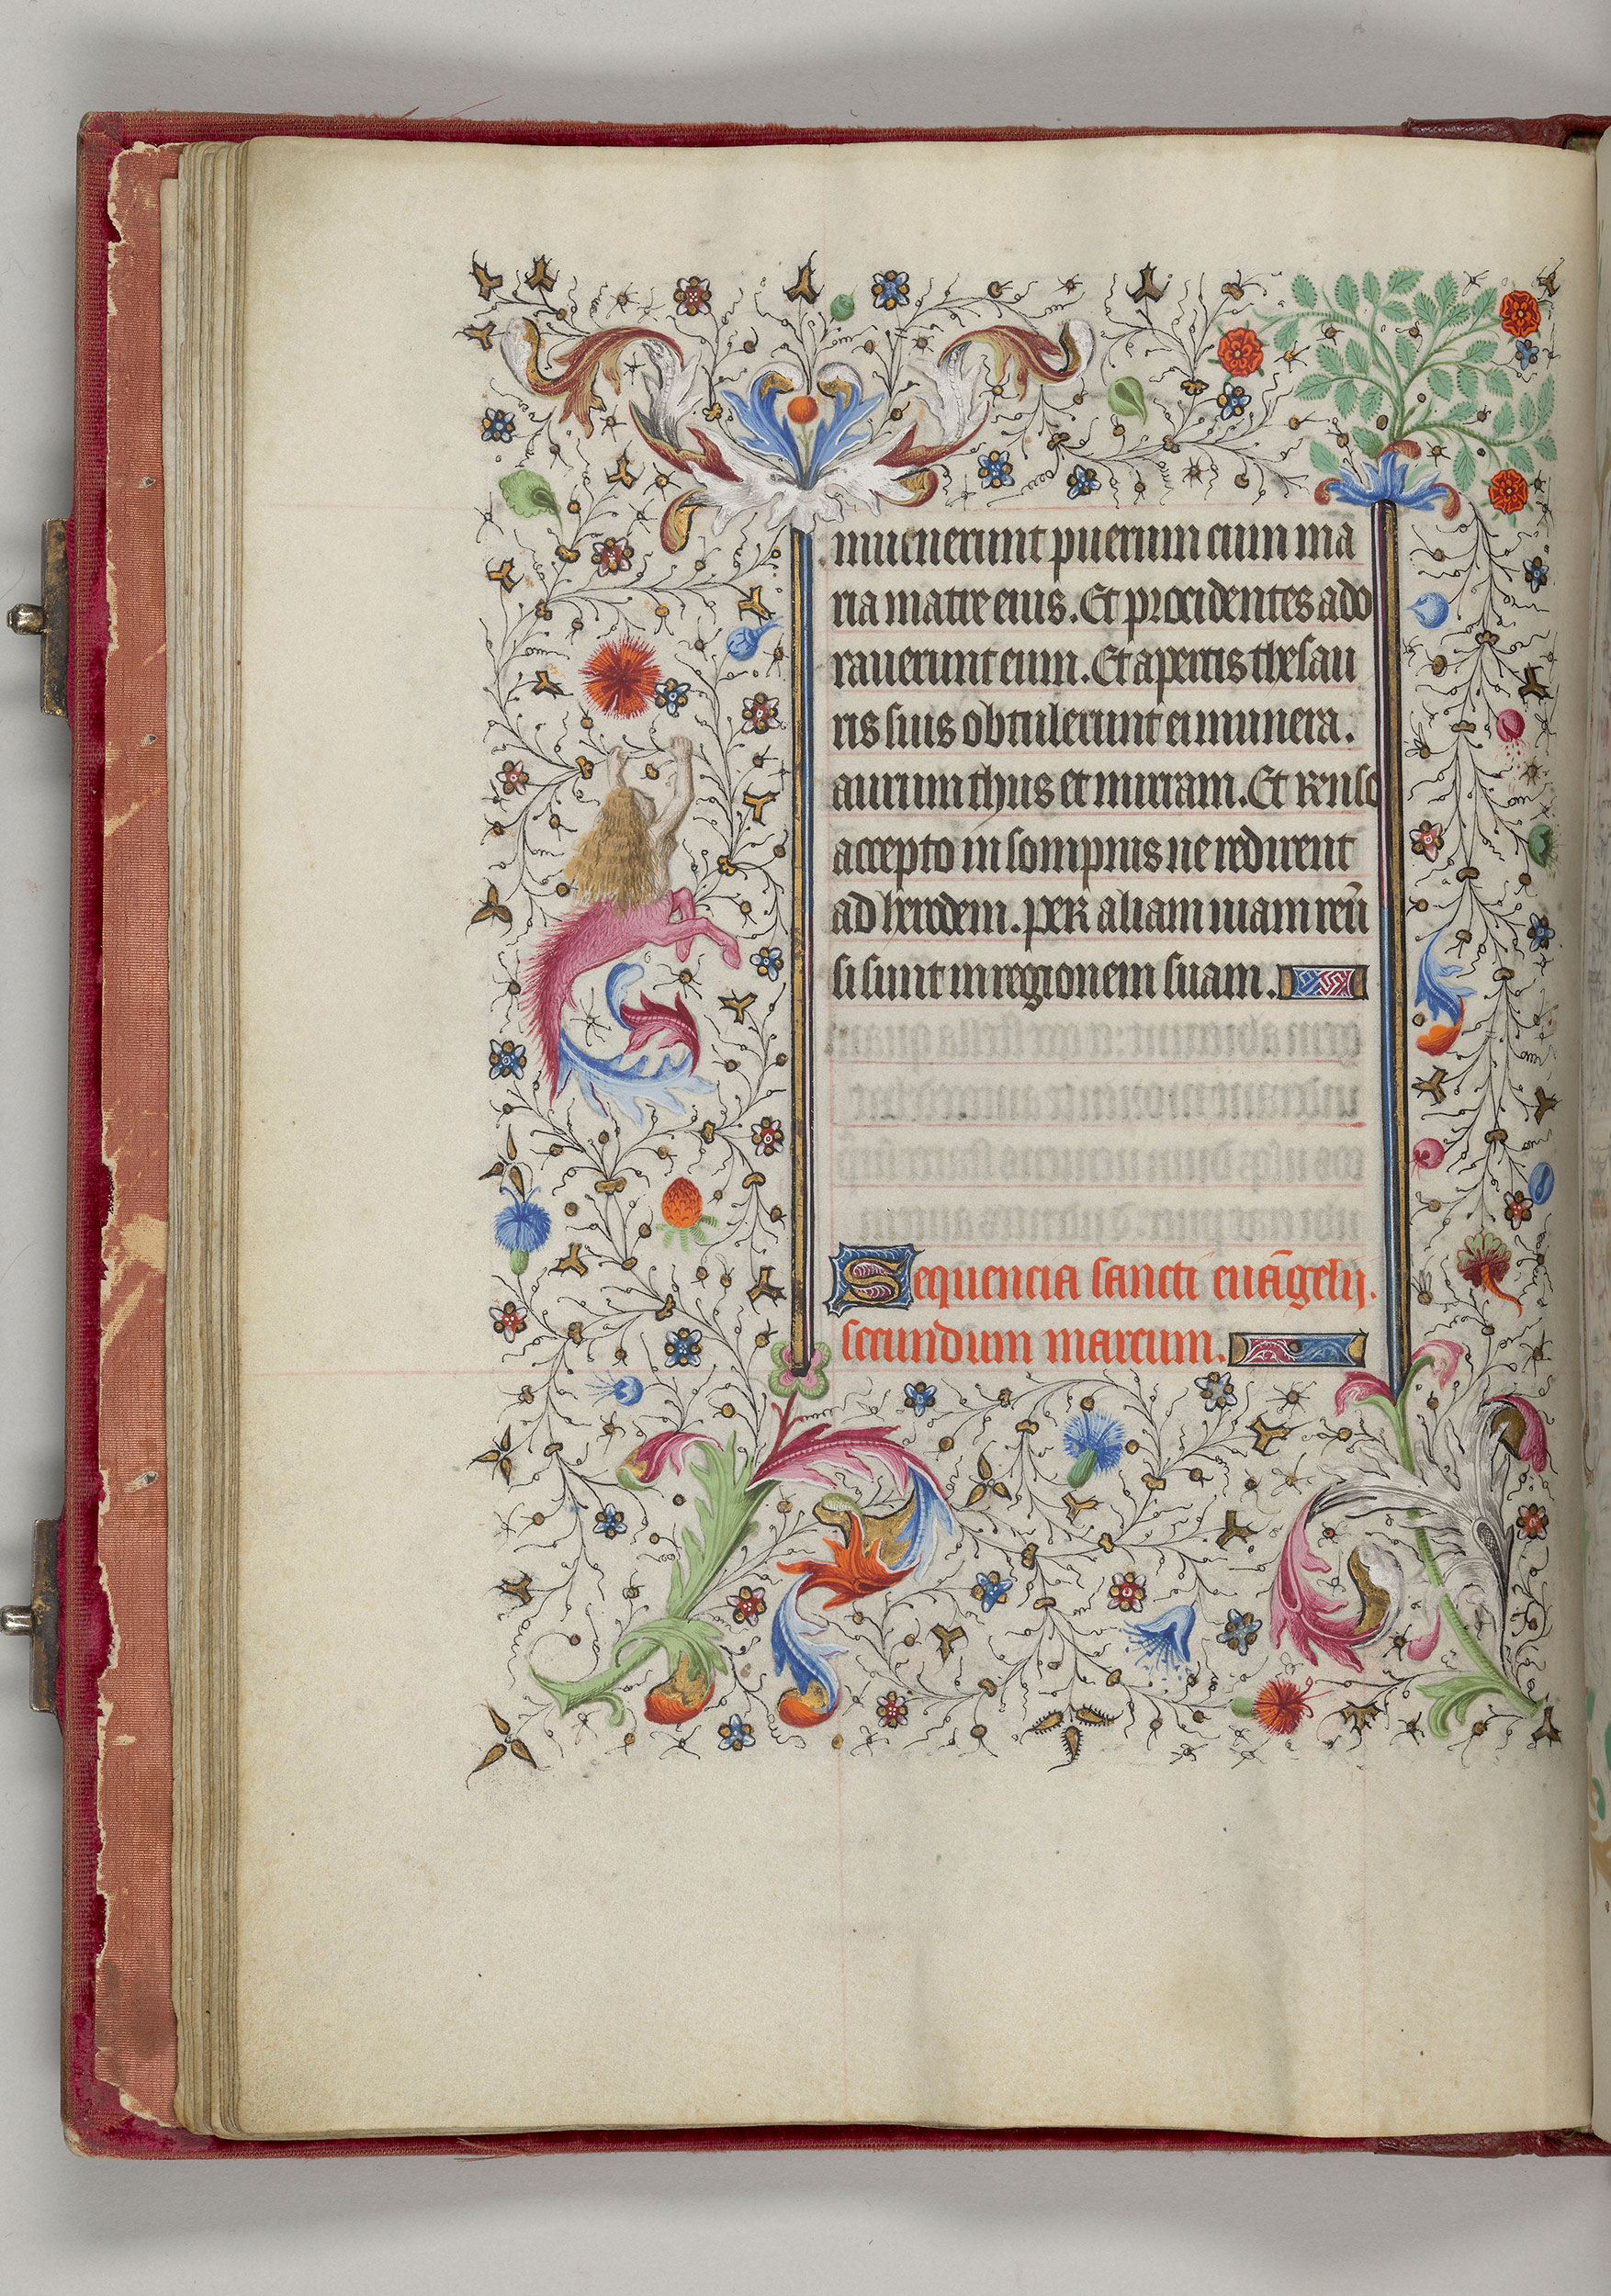 muenerunt puerum cum ma
ria matre eius. Et procidentes ado
rauerunt eum. Et apertis thesau
ris suis obtulerunt ei munera.
aurum thus et mirram. Et renso
accepto in sompnis ne redirent
ad herodem. per aliam uiam reũ
si sunt in regionem suam.
Sequencia sancti euãgelij.
secundum marcum.